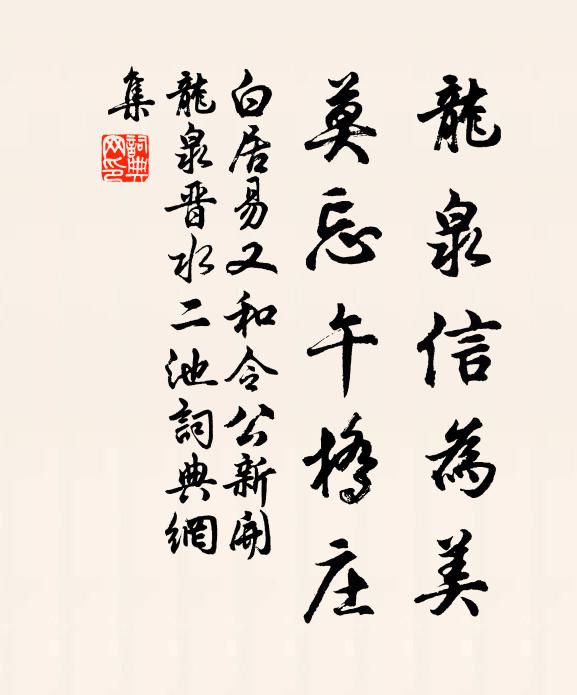 龍泉信為美
莫忘午橋庄
白居易又和令公新開
龍泉晋水二池詞典網
集
詞典
网印